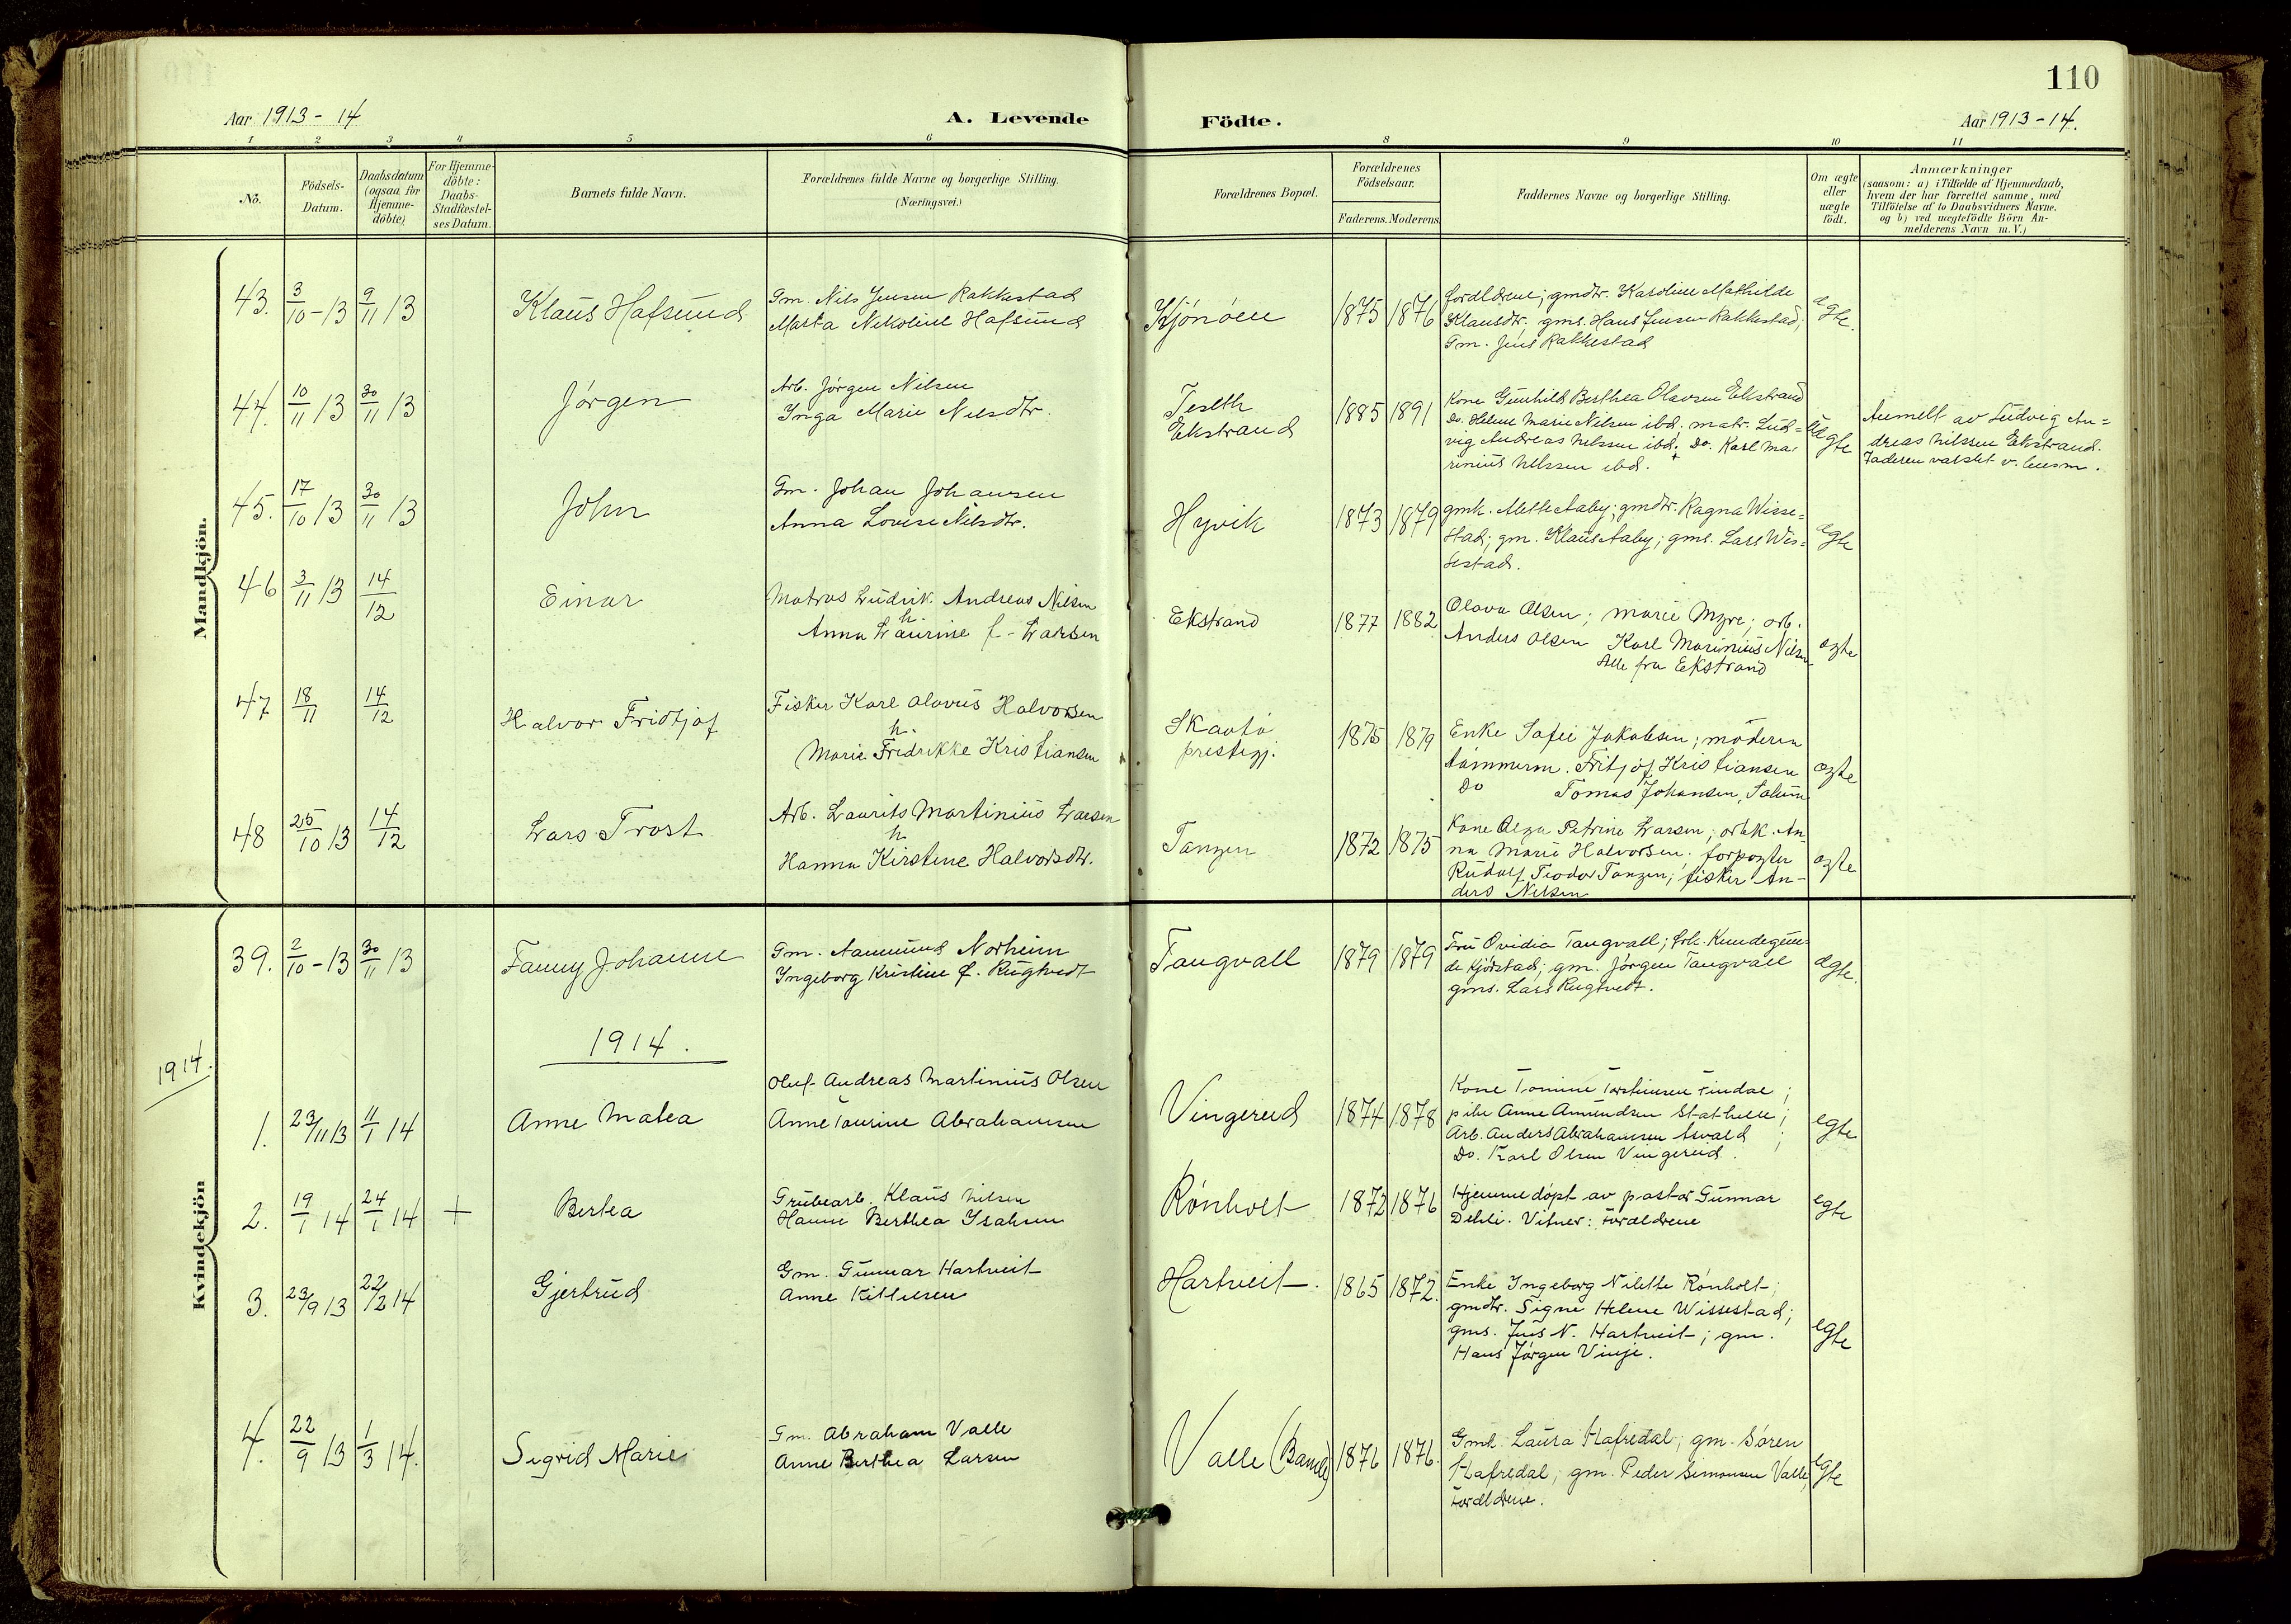 110
Aar 1913 - 14
A. Levende
Födte.
Aar 1913 - 14.
1 2 3 4 5 6 8 9 10 11
No.
Födsels-
Datum.
Daabsdatum
(ogsaa for
Hjemme-
döbte)
For Hjemme-
döbte:
Daabs-
Stadfæstel-
ses Datum.
Barnets fulde Navn.
Forældrenes fulde Navne og borgerlige Stilling.
(Næringsvei.)
Forældrenes Bopæl.
Forældrenes
Födselsaar.
Faderens. Moderens.
Faddernes Navne og borgerlige Stilling.
Om ægte
eller
uægte
födt.
Anmærkninger
(saasom: a) i Tilfælde af Hjemmedaab,
hvem der har forrettet samme, med
Tilföielse af to Daabsvidners Navne.
og b) ved uægtefödte Börn An-
melderens Navn m. V.)
Mandkjön.
43. 3/10 - 13 9/11 13
Klaus Hafsund
Gm. Nils Jensen Rakkestad
Marta Nikoline Hafsund
Kjönöen
1875 1876
forældrene; gmdtr. Karoline Mathilde
Klausdtr. gms. Hans Jensen Rakkestad;
Gm. Jens Rakkestad
egte.
44. 10/11 13 30/11 13
Jörgen
Arb. Jörgen Nilsen
Inga Marie Nilsdtr.
Ekstrand
1885 1891
Kone Gunhild Berthea Olavsen Ekstrand
Do. Helene Marie Nilsen ibd. matr. Lud=
vig Andreas Nilssen ibd. Do. Karl Ma-
rinius Nilssen ibd.
uægte
Anmelt av Ludvig An=
dreas Nilssen Ekstrand.
Faderen varslet v. lensm.
45. 17/10 13 30/11 13
John
Gm. Johan Johansen
Anna Lovise Nilsdtr.
Hyvik
1873 1879
gmk. Mette Aaby; gmdtr. Ragna Wisse=
stad; gm. Klaus Aaby; gms. Lars Wis=
sestad.
egte
46 3/11 13 14/12
Einar
Matros Ludvik Andreas Nilsen
h.
Anna Laurine f. Larsen
Ekstrand
1877 1882
Olava Olsen; Marie Myre; arb.
Anders Olsen Karl Marinius Nilsen
Alle fra Ekstrand
egte
47 18/11 14/12
Halvor Fridtjof
Fisker Karl Olavus Halvorsen
h.
Marie Fredrikke Kristiansen
Skaatö
prestegj.
1875 1879
Enke Sofie Jakobsen; moderen
tömmerm. Fritjof Kristiansen
Do Tomas Johansen, Solum
egte
48 25/10 13 14/12
Lars Trost
Arb. Laurits Martinius Larsen
h.
Hanna Kirstine Halvorsdtr.
Tangen
1872 1875
Kone Olga Petrine Larsen; arbk. An-
na Marie Halvorsen; forpagter
Rudolf Teodor Tangen; fisker An-
ders Nilsen
egte
Kvindekjön
39. 2/10 - 13 30/11 13
Fanny Johanne
Gm. Aanund Norheim
Ingeborg Kristine f. Rugtvedt
Tangvall
1879 1879
Fru Ovidia Tangvall; frk. Kundegun=
de Kjörstad; gm. Jörgen Tangvall
gms. Lars Rugtvedt.
egte.
1914.
1914.
1. 23/11 13 11/1 14
Anne Matea
Oluf Andreas Martinius Olsen
Anne Taurine Abrahamsen
Vingereid
1874 1878
Kone Tomine Torstensen Findal;
pike Anne Amundsen Stathelle;
Arb. Anders Abrahamsen Asvald;
Do. Karl Olsen Vingereid.
egte
2. 19/1 14 24/1 14 +
Bertea
Grubearb. Klaus Nilsen
Hanne Berthea Isaksen
Rönholt
1872 1876
Hjemmedöpt av pastor Gunnar
Dehli. Vitner: Forældrene
egte
3. 23/9 13 22/2 14
Gjertrud
Gm. Gunnar Hartveit
Anne Kittilsen
Hartveit.
1865 1872.
Enke Ingeborg Nilette Rönholt;
gmdtr. Signe Helene Wissestad;
gms. Jens N. Hartveit; gm.
Hans Jörgen Vinje.
egte
4. 22/9 13 1/3 14.
Sigrid Marie
Gm. Abraham Valle
Anne Berthea Larsen
Valle (Bamle)
1876 1876.
Gmk. Laura Hafredal; gm. Sören
Hafredal; gm. Peder Simonsen Valle,
Forældrene.
egte